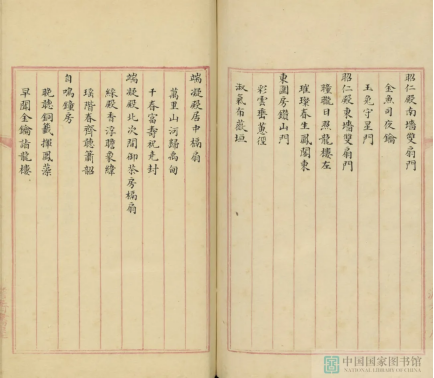 昭仁殿南墻雙扇門
金魚司夜鑰
玉兔守星門
昭仁殿東墻雙扇門
曈曨日照龍樓左
璀璨春生鳳閣東
東圍房鑽山門
彩雲密蕙徑
淑氣布薇垣
端凝殿居中槅扇
萬里山河歸禹甸
千春富壽祝堯封
端凝殿北次間御茶房槅扇
綵殿香淳聽象緯
瑛階春齊聽蕭韶
自鳴鐘房
晚聽銅籤揮鳳藻
早開金鑰詣龍樓
中国国家图书馆
NATIONAL LIBRARY OF CHINA